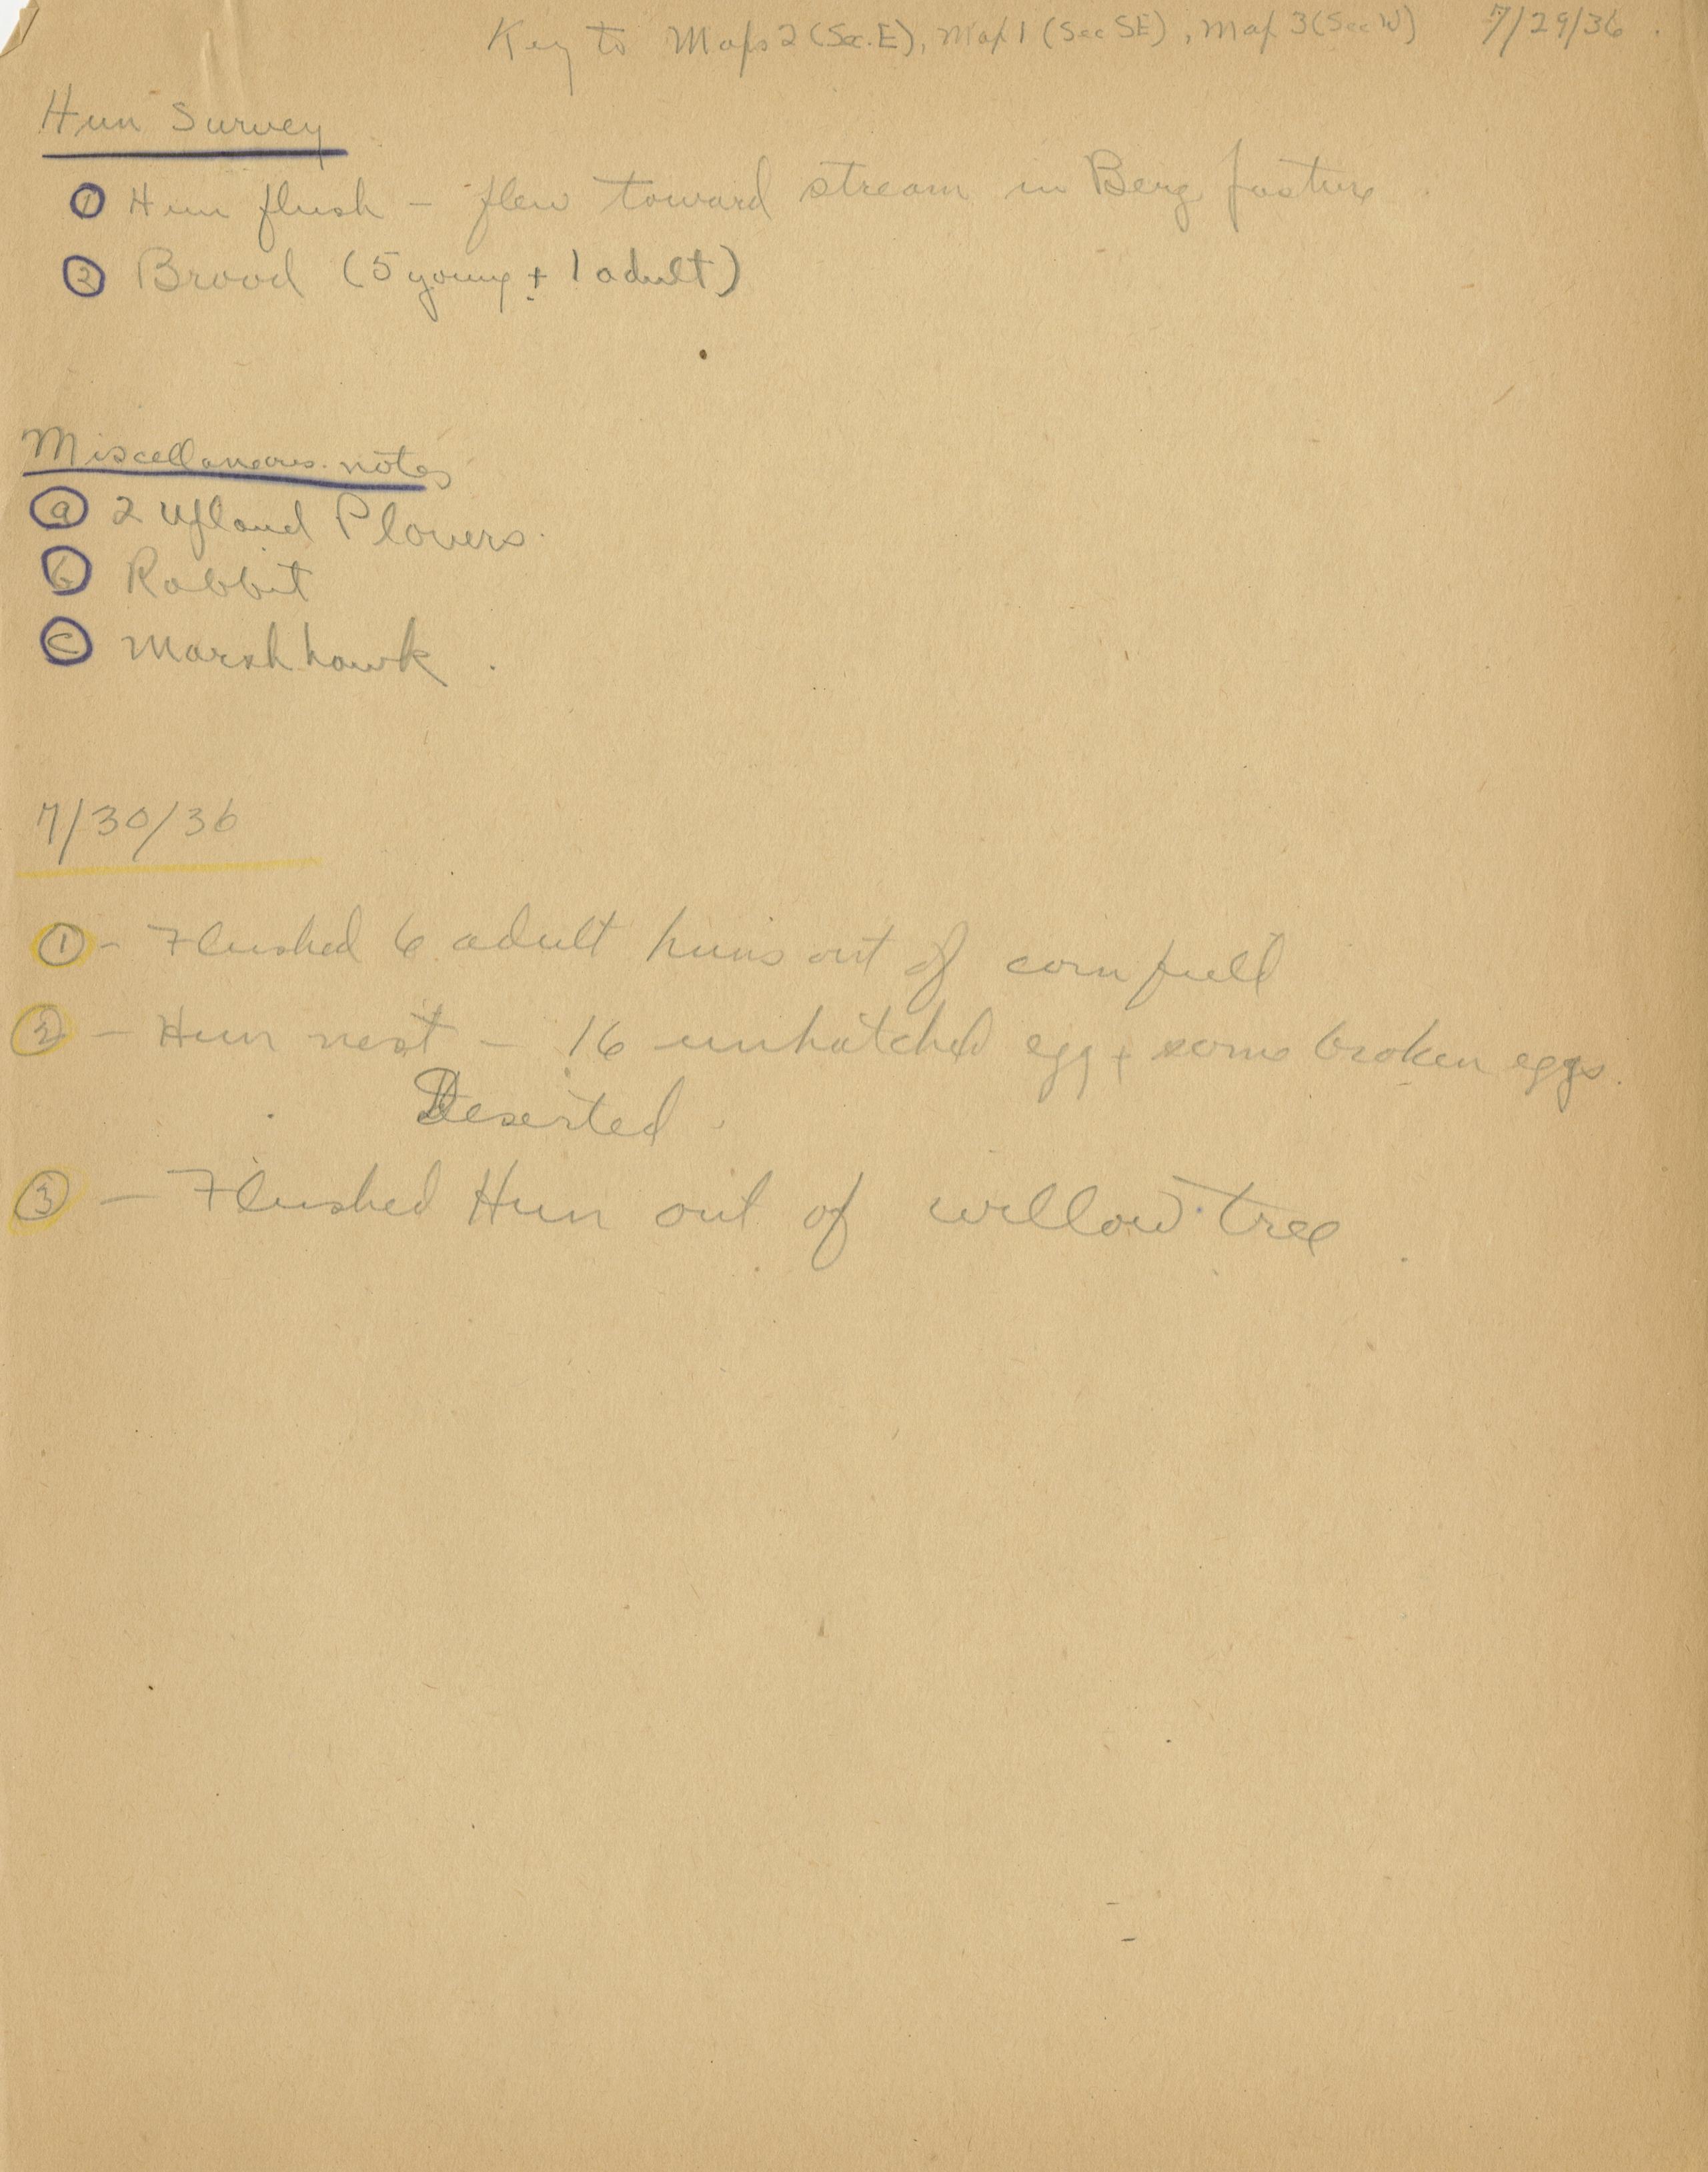 Key to Maps 2 (Sec. E), Map 1 (Sec SE), Map 3 (Sec W) 7/29/36.
Hun Survey
① Hun flush - flew toward stream in Berg pasture.
② Brood (5 young + 1 adult)
Miscellaneous notes
ⓐ 2 Upland Plovers.
ⓑ Rabbit
ⓒ Marsh hawk.
7/30/36
① - Flushed 6 adult huns out of corn field
② - Hun nest - 16 unhatched egg + some broken eggs.
Deserted.
③ - Flushed Hun out of willow tree.